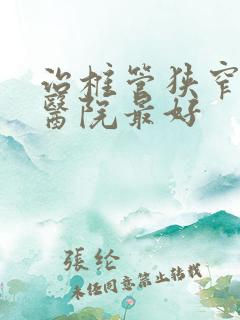 治椎管狭窄
醫院最好
張纶
未经同意禁止转载